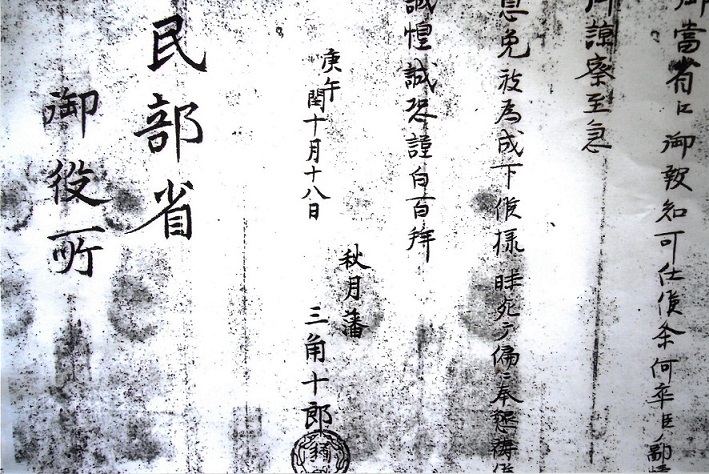 御當省江御報知可仕候条何卒臣
諒察至急
息免被為成下候様昧死ヲ偏ニ奉懇祷候
誠惶誠恐謹白百拜
庚午閏十月十八日
秋月藩
三角十郎
民部省
御役所